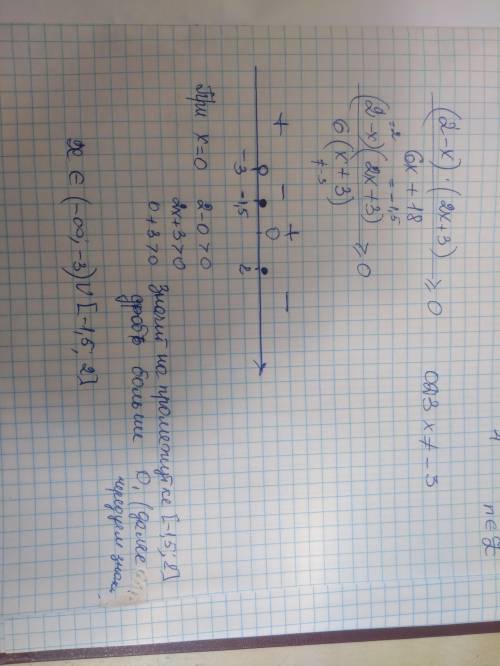 n ∈ Z
(2-x)·(2x+3) / 6x+18 ≥ 0    ОДЗ x ≠ -3
=2 = -1,5
(2-x)(2x+3) / 6(x+3) ≥ 0
≠-3
+ - + -
-3 -1,5 0 2
При x=0 2-0>0
2x+3>0
0+3>0
Значит на промежутке [-1,5; 2]
дробь больше 0, (далее
чередуем знаки.
x ∈ (-∞; -3) ∪ [-1,5; 2]